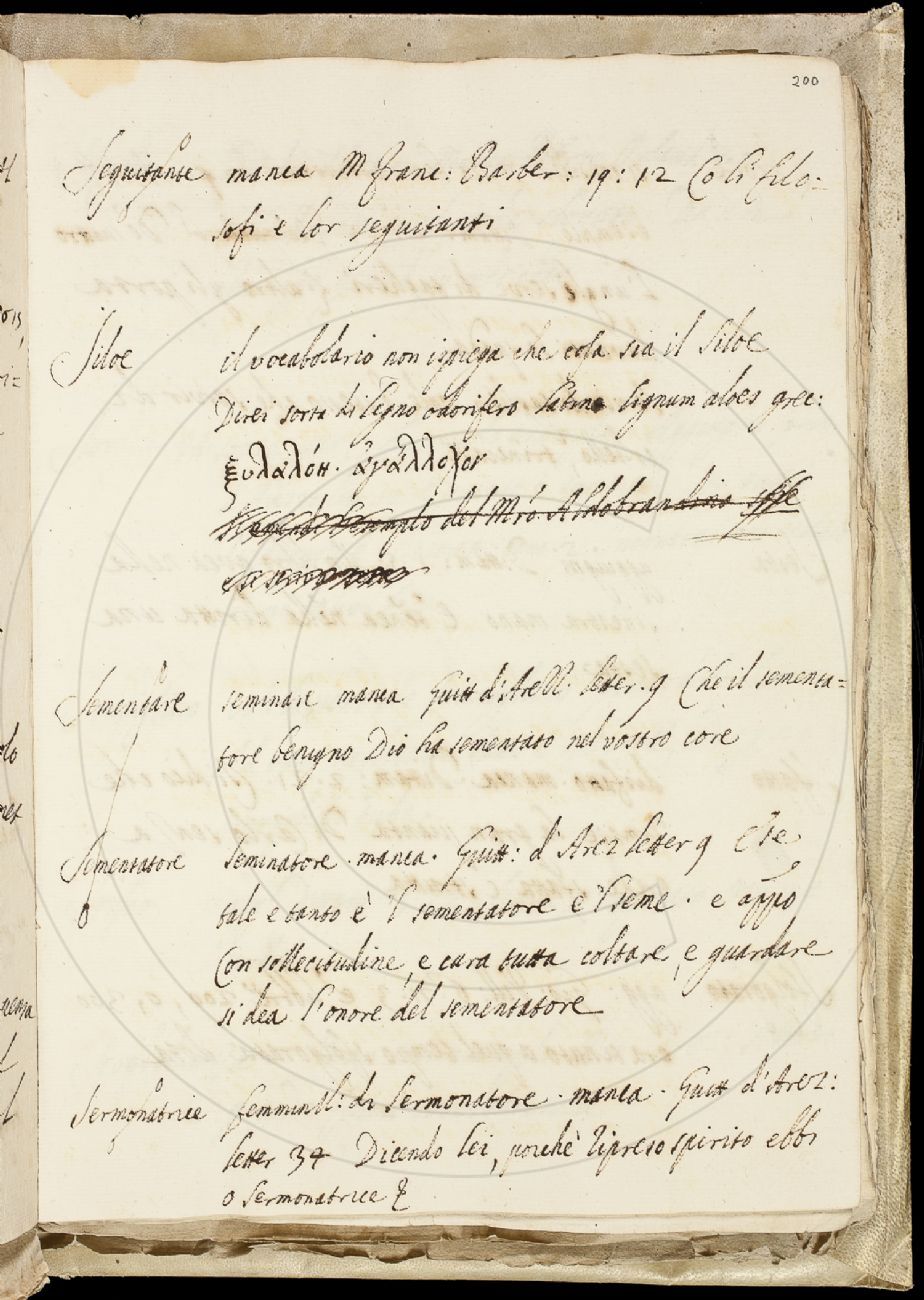 200
Seguitante manca M Franc: Barber: 19: 12 Co li filo=
sofi e lor seguitanti
Siloe il vocabolario non ispiega che cosa sia il Siloe
Direi sorta di legno odorifero latino lignum aloes grec:
ξυλαλόη. ἀγάλλοχον
del Mró Aldobrandino
Sementare seminare manca Guitt d'Arezz. letter. 9 Che il sementa=
tore benigno Dio ha sementato nel vostro core
Sementatore Seminatore. manca. Guitt: d'Arez letter 9 E se
tale e tanto è 'l sementatore e 'l seme. e appo
Con sollecitudine, e cura tutta coltare, e guardare
si dea l'onore del sementatore
Sermonatrice femminil: di Sermonatore. manca. Guitt d'Arez:
letter 34 Dicendo lei, poichè ripreso spirito ebbi
o Sermonatrice